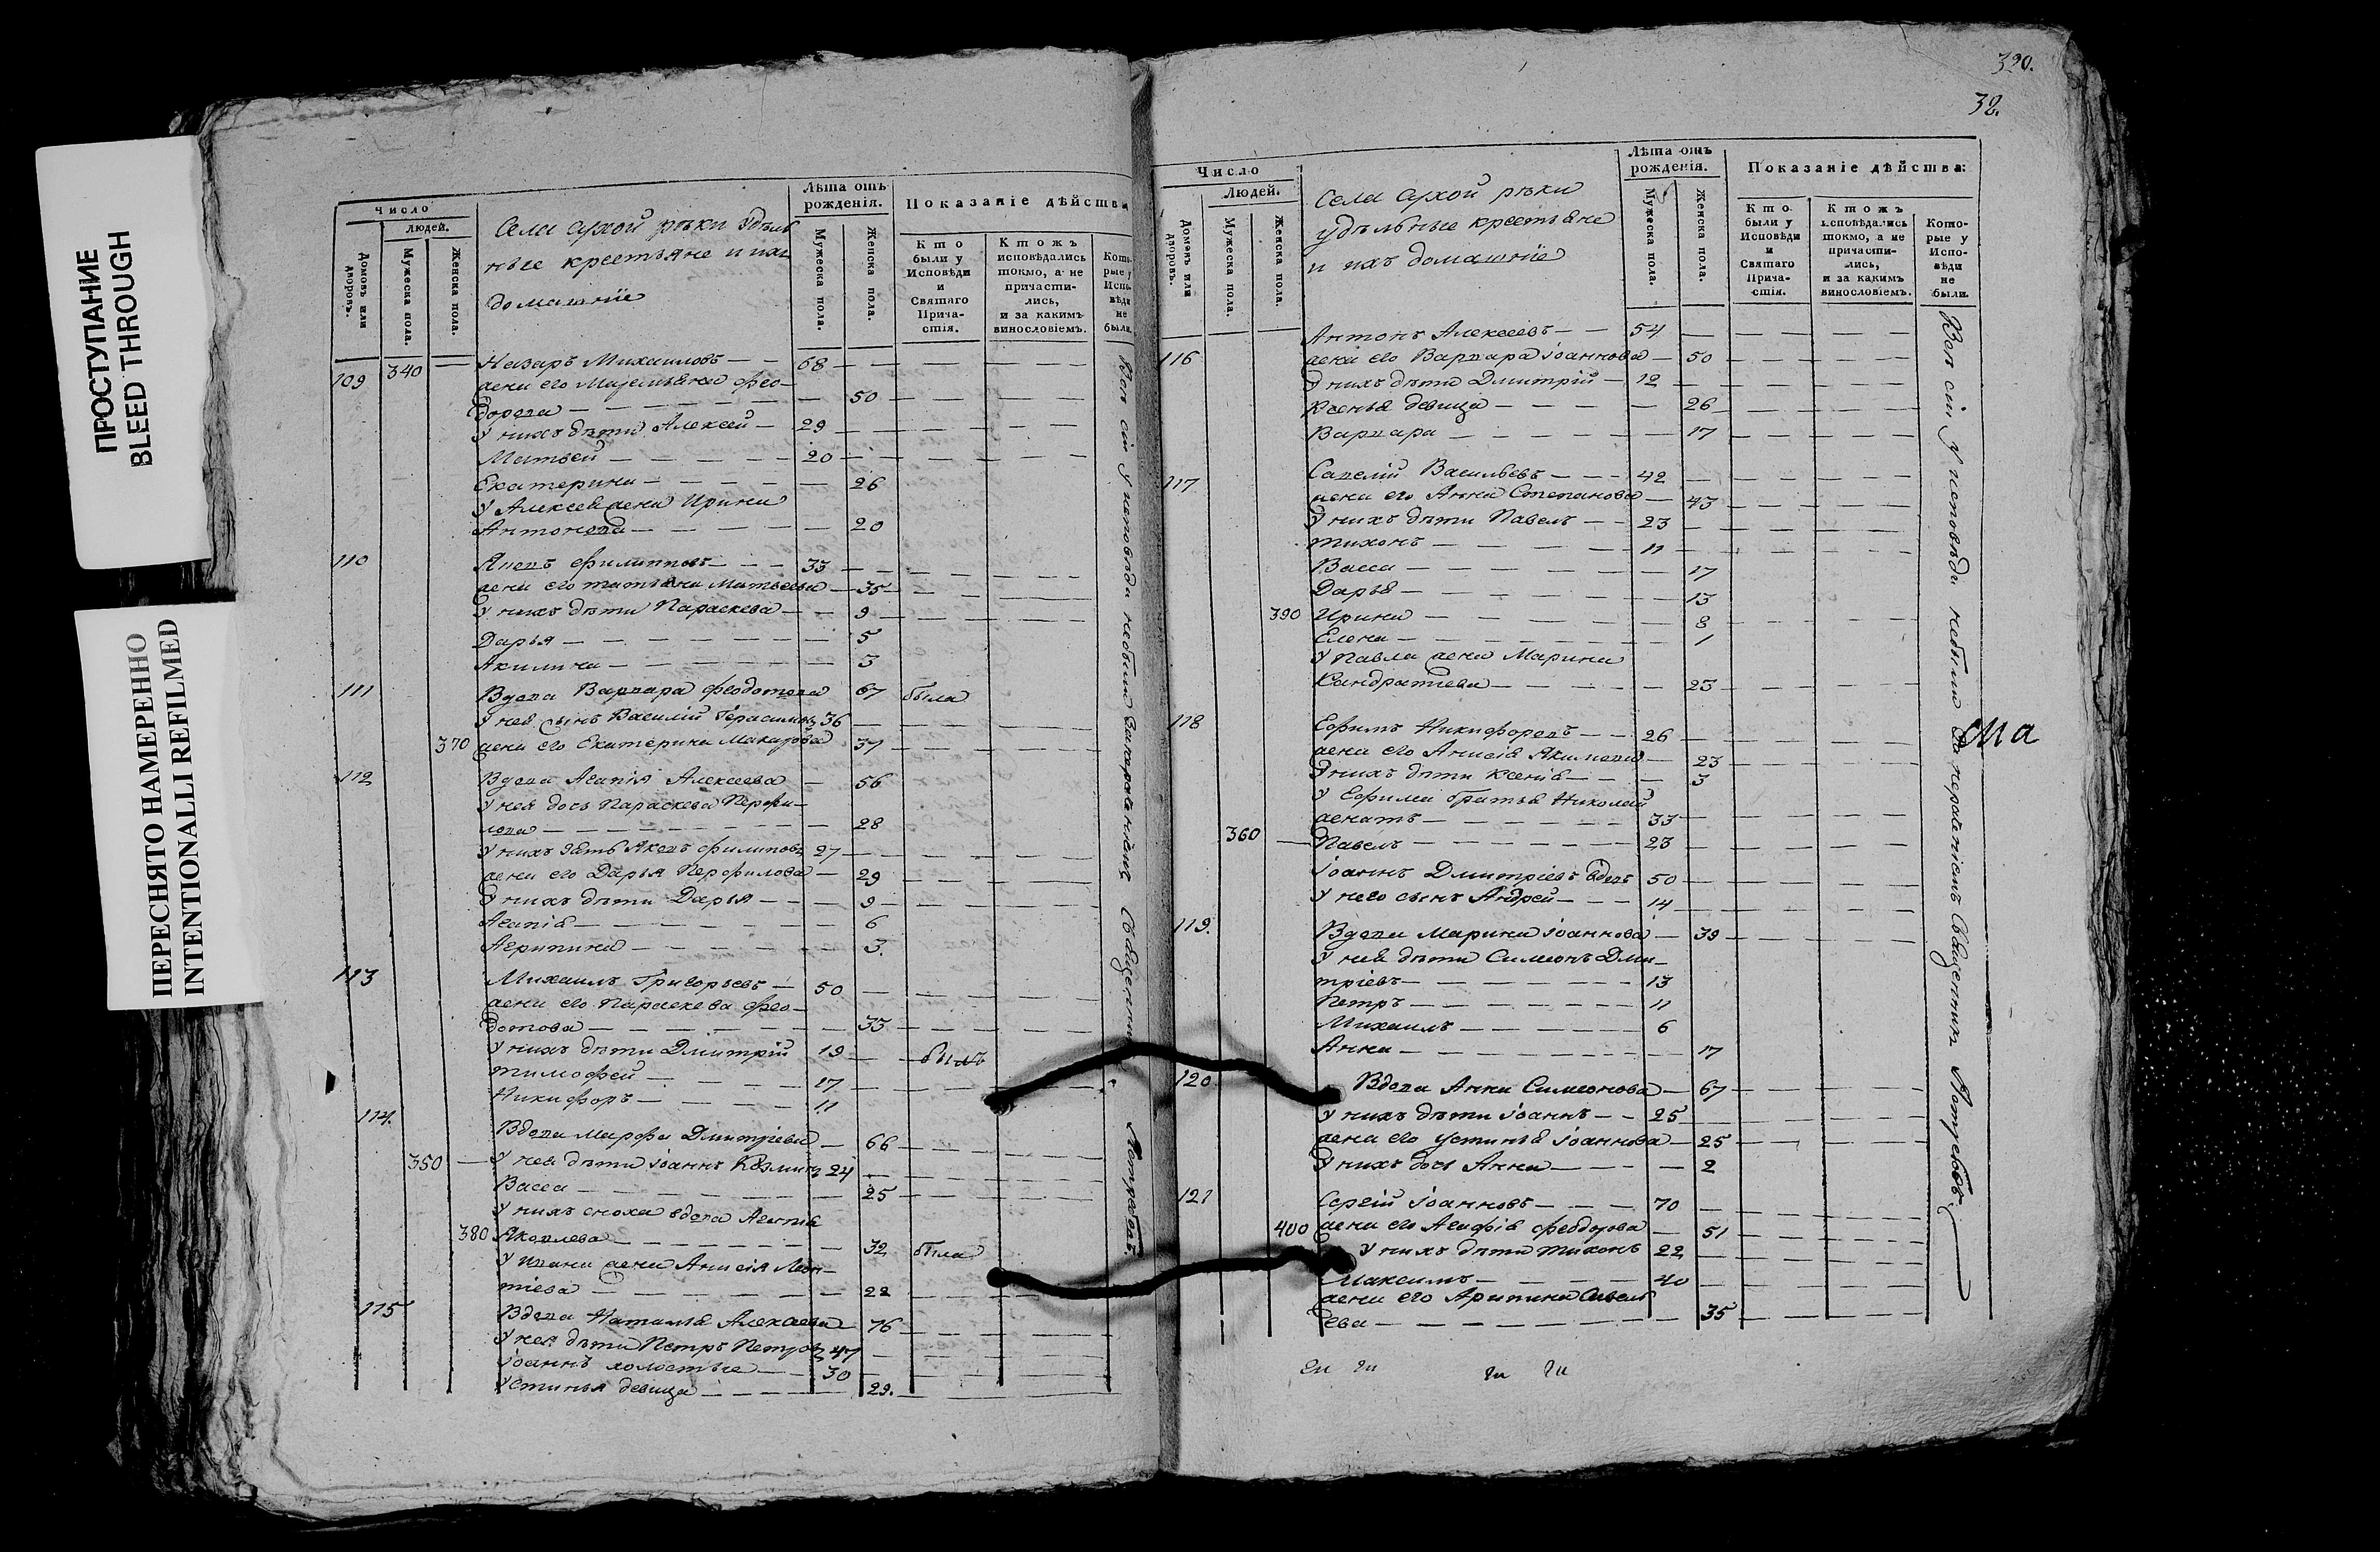 ПРОСТУПАНИЕ
BLEED THROUGH
ПЕРЕСНЯТО НАМЕРЕННО
INTENTIONALLI REFILMED
Число
людей.
Домовъ или дворовъ.
Мужеска пола.
Женска пола.
Села сухой рѣки удѣль
ные крестьяне и ихъ
домашніе
Лѣта отъ рожденія.
Мужеска пола.
Женска пола.
Показаніе дѣйства
Кто были у Исповѣди и Святаго Прича-стія.
Ктожъ исповѣдались токмо, а не причасти-лись, и за какимъ винословіемъ.
Кото-рые у Испо-вѣди не были.
109 340 — Назаръ Михаиловъ — 68
жена его Мазельяна Фео-
дорова — 50
у нихъ дѣти Алексей — 29
Матвей — 20
Екатерина — 26
у Алексея жена Ирина
Антонова — 20
110 Яковъ Филипповъ — 33
жена его татьяна Матвеева — 35
у нихъ дѣти Параскева — 9
Дарья — 5
Акилина — 3
111 Вдова Варвара Феодотова 67 была
у нея сынъ Василій Герасимовъ 36
370 жена его Екатерина Макарова 37
112 Вдова Агапія Алексеева — 56
у нея дочь Параскева Перфи-
лова — 28
у нихъ зять Яковъ Филиповъ 27
жена его Дарья Перфилова — 29
у нихъ дѣти Дарья — 9
Агапія — 6
Агрипина — 3.
113 Михаилъ Григорьевъ — 50
жена его Параскева Фео-
дотова — 33
у нихъ дѣти Дмитрій 19 — былъ
тимофей — 17
Никифоръ — 11
114. Вдова Марфа Дмитріева — 66
350 — у нея дѣти Іоаннъ Козминъ 24
Васса — 25
у нихъ сноха вдова Агапія
380 Яковлева — 32 была
у Ивана жена Анисія Леон-
тіева — 22
115 Вдова Наталья Алексеева 76
у нея дѣти Петръ Петровъ 47
Іоаннъ холостые — 30
Устинья девица — 29.
Вси сіи у исповѣди небыли Священникъ
320.
32.
Число
Людей.
Домовъ или дворовъ.
Мужеска пола.
Женска пола.
Села сухой рѣки
удѣльные крестьяне
и ихъ домашніе
Лѣта отъ рожденія.
Мужеска пола.
Женска пола.
Показаніе дѣйства:
Кто были у Исповѣди и Святаго Прича-стія.
Ктожъ исповѣдались токмо, а не причасти-лись, и за какимъ винословіемъ.
Кото-рые у Испо-вѣди не были.
116 Антонъ Алексеевъ — 54
жена его Варвара Іоаннова — 50
у нихъ дѣти Дмитрій — 12
Ксенья девица — 26
Варвара — 17
117 Савелій Васильевъ — 42
жена его Анна Степанова — 43
у нихъ дѣти Павелъ — 23
тихонъ — 11
Васса — 17
Дарья — 13
390 Ирина — 8
Елена — 1
у Павла жена Марина
Кандратиева — 23
118 Ефимъ Никифоровъ — 26
жена его Анисія Акимова — 23
у нихъ дѣти Ксенія — 3
у Ефима братья Николай
женатъ — 33
360 — Павелъ — 23
Іоаннъ Дмитріевъ вдовъ 50
у него сынъ Андрей — 14
119. Вдова Марина Іоаннова — 39
у нея дѣти Симеонъ Дми-
тріевъ — 13
Петръ — 11
Михаилъ — 6
Анна — 17
120 Вдова Анна Симеонова — 67
у нихъ дѣти Іоаннъ — 25
жена его Устинья Іоаннова — 25
у нихъ дочь Анна — 2
121 Сергій Іоанновъ — 70
400 жена его Агафія Феодорова — 51
у нихъ дѣти тихонъ 22
Максимъ — 40
жена его Арипина Савель
ева — 35
Вси сіи у исповѣди небыли за нераченіемъ Священникъ